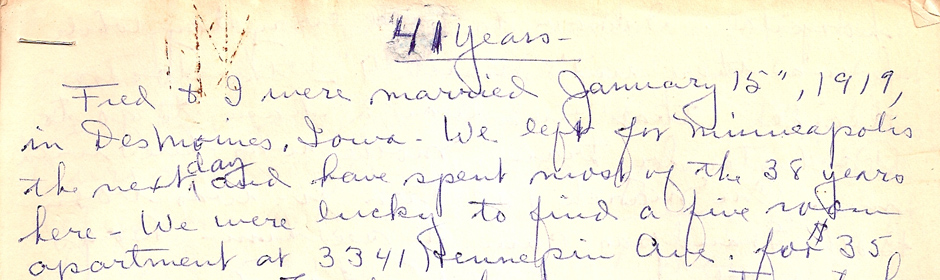 41 Years-
Fred & I were married January 15", 1919,
in Desmoines, Iowa - We left for Minneapolis
the next day and have spent most of the 38 years
here - We were lucky to find a five room
apartment at 3341 Hennepin Ave. for $35